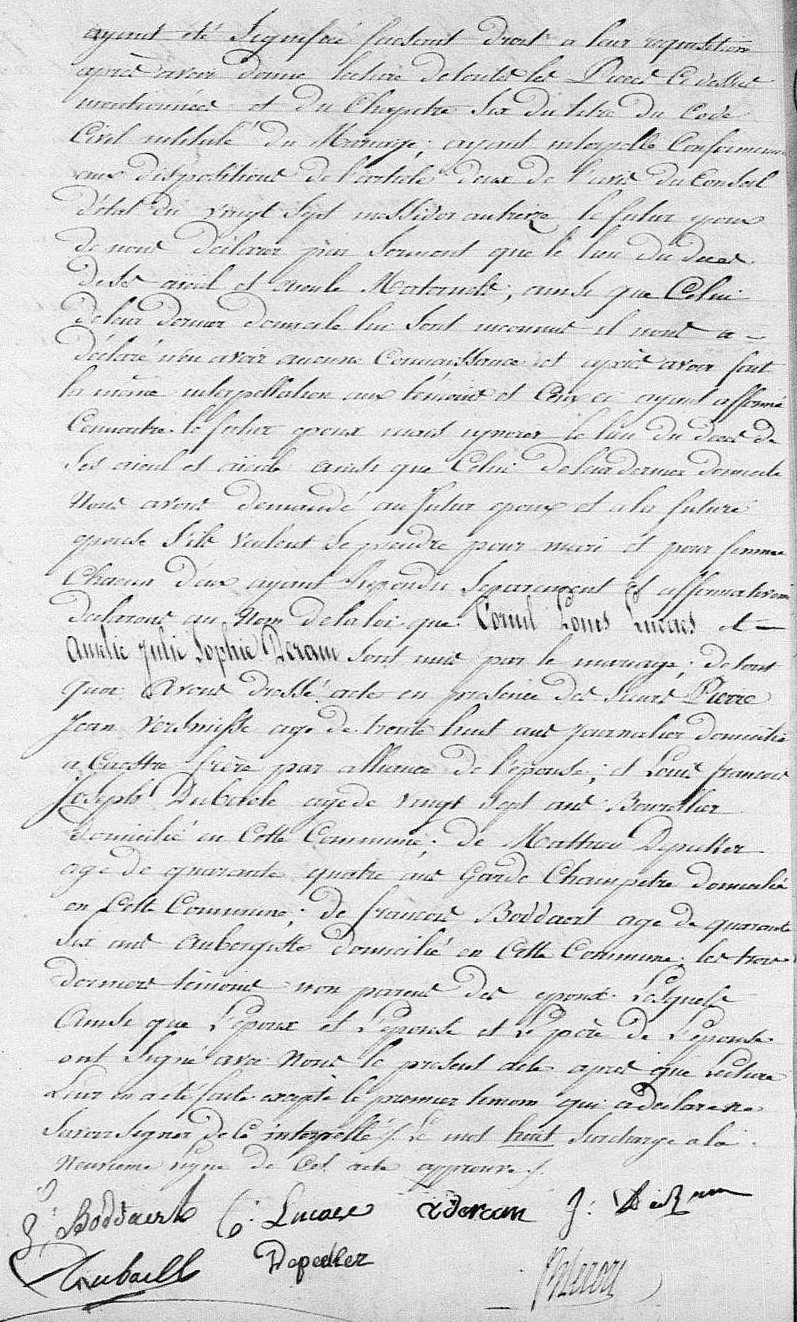 ayant été signifié faisant droit a leur requisition
après avoir donné lecture de toutes les Pieces Ci dessus
mentionnées et du Chapitre Six du titre du Code
Civil intitulé du Mariage; ayant interpellé Conformement
aux dispositions de l'article deux de l'avis du Conseil
d'état du vingt Sept messidor an treize le futur epoux
de nous déclarer par Serment que le lieu du deces
de Ses aieul et aieule Maternels, ainsi que Celui
de leur dernier domicile lui Sont inconnus il nous a
déclaré n'en avoir aucune Connaissance et après avoir fait
la même interpellation aux témoins et Ceux ci ayant affirmé
Connaitre le futur epoux mais ignorer le lieu du deces de
Ses aieul et aieule ainsi que Celui de leur dernier domicile
Nous avons demandé au futur epoux et a la future
epouse S'ils veulent Se prendre pour mari et pour femme
Chacun d'eux ayant Repondu Separement et affirmativement
declarons au Nom de la loi que Cornil Louis Lucaes et
Amelie Julie Sophie Deram Sont unis par le mariage; de tout
quoi avons dressé acte en presence des Sieurs Pierre
Jean age de trente huit ans Journalier domicilié
a Caestre frère par alliance de l'epouse; et Louis francois
Joseph age de vingt Sept ans Bourellier
domicilié en Cette Commune; de Mathieu Depulker
age de quarante quatre ans Garde Champetre domicilié
en Cette Commune; de francois Boddaert age de quarante
Six ans Aubergiste domicilié en Cette Commune les trois
derniers témoins non parens des epoux. Lesquels
Ainsi que L'epoux et L'epouse et Le père de L'epouse
ont Signé avec Nous le present acte après que Lecture
Leur en a été faite excepté le premier temoin qui a declaré ne
Savoir signer de Ce interpellé /. Le mot huit Surchargé a la
Neuvieme ligne de Cet acte approuvé /.
f: Boddaert C: Lucaes J: Deram